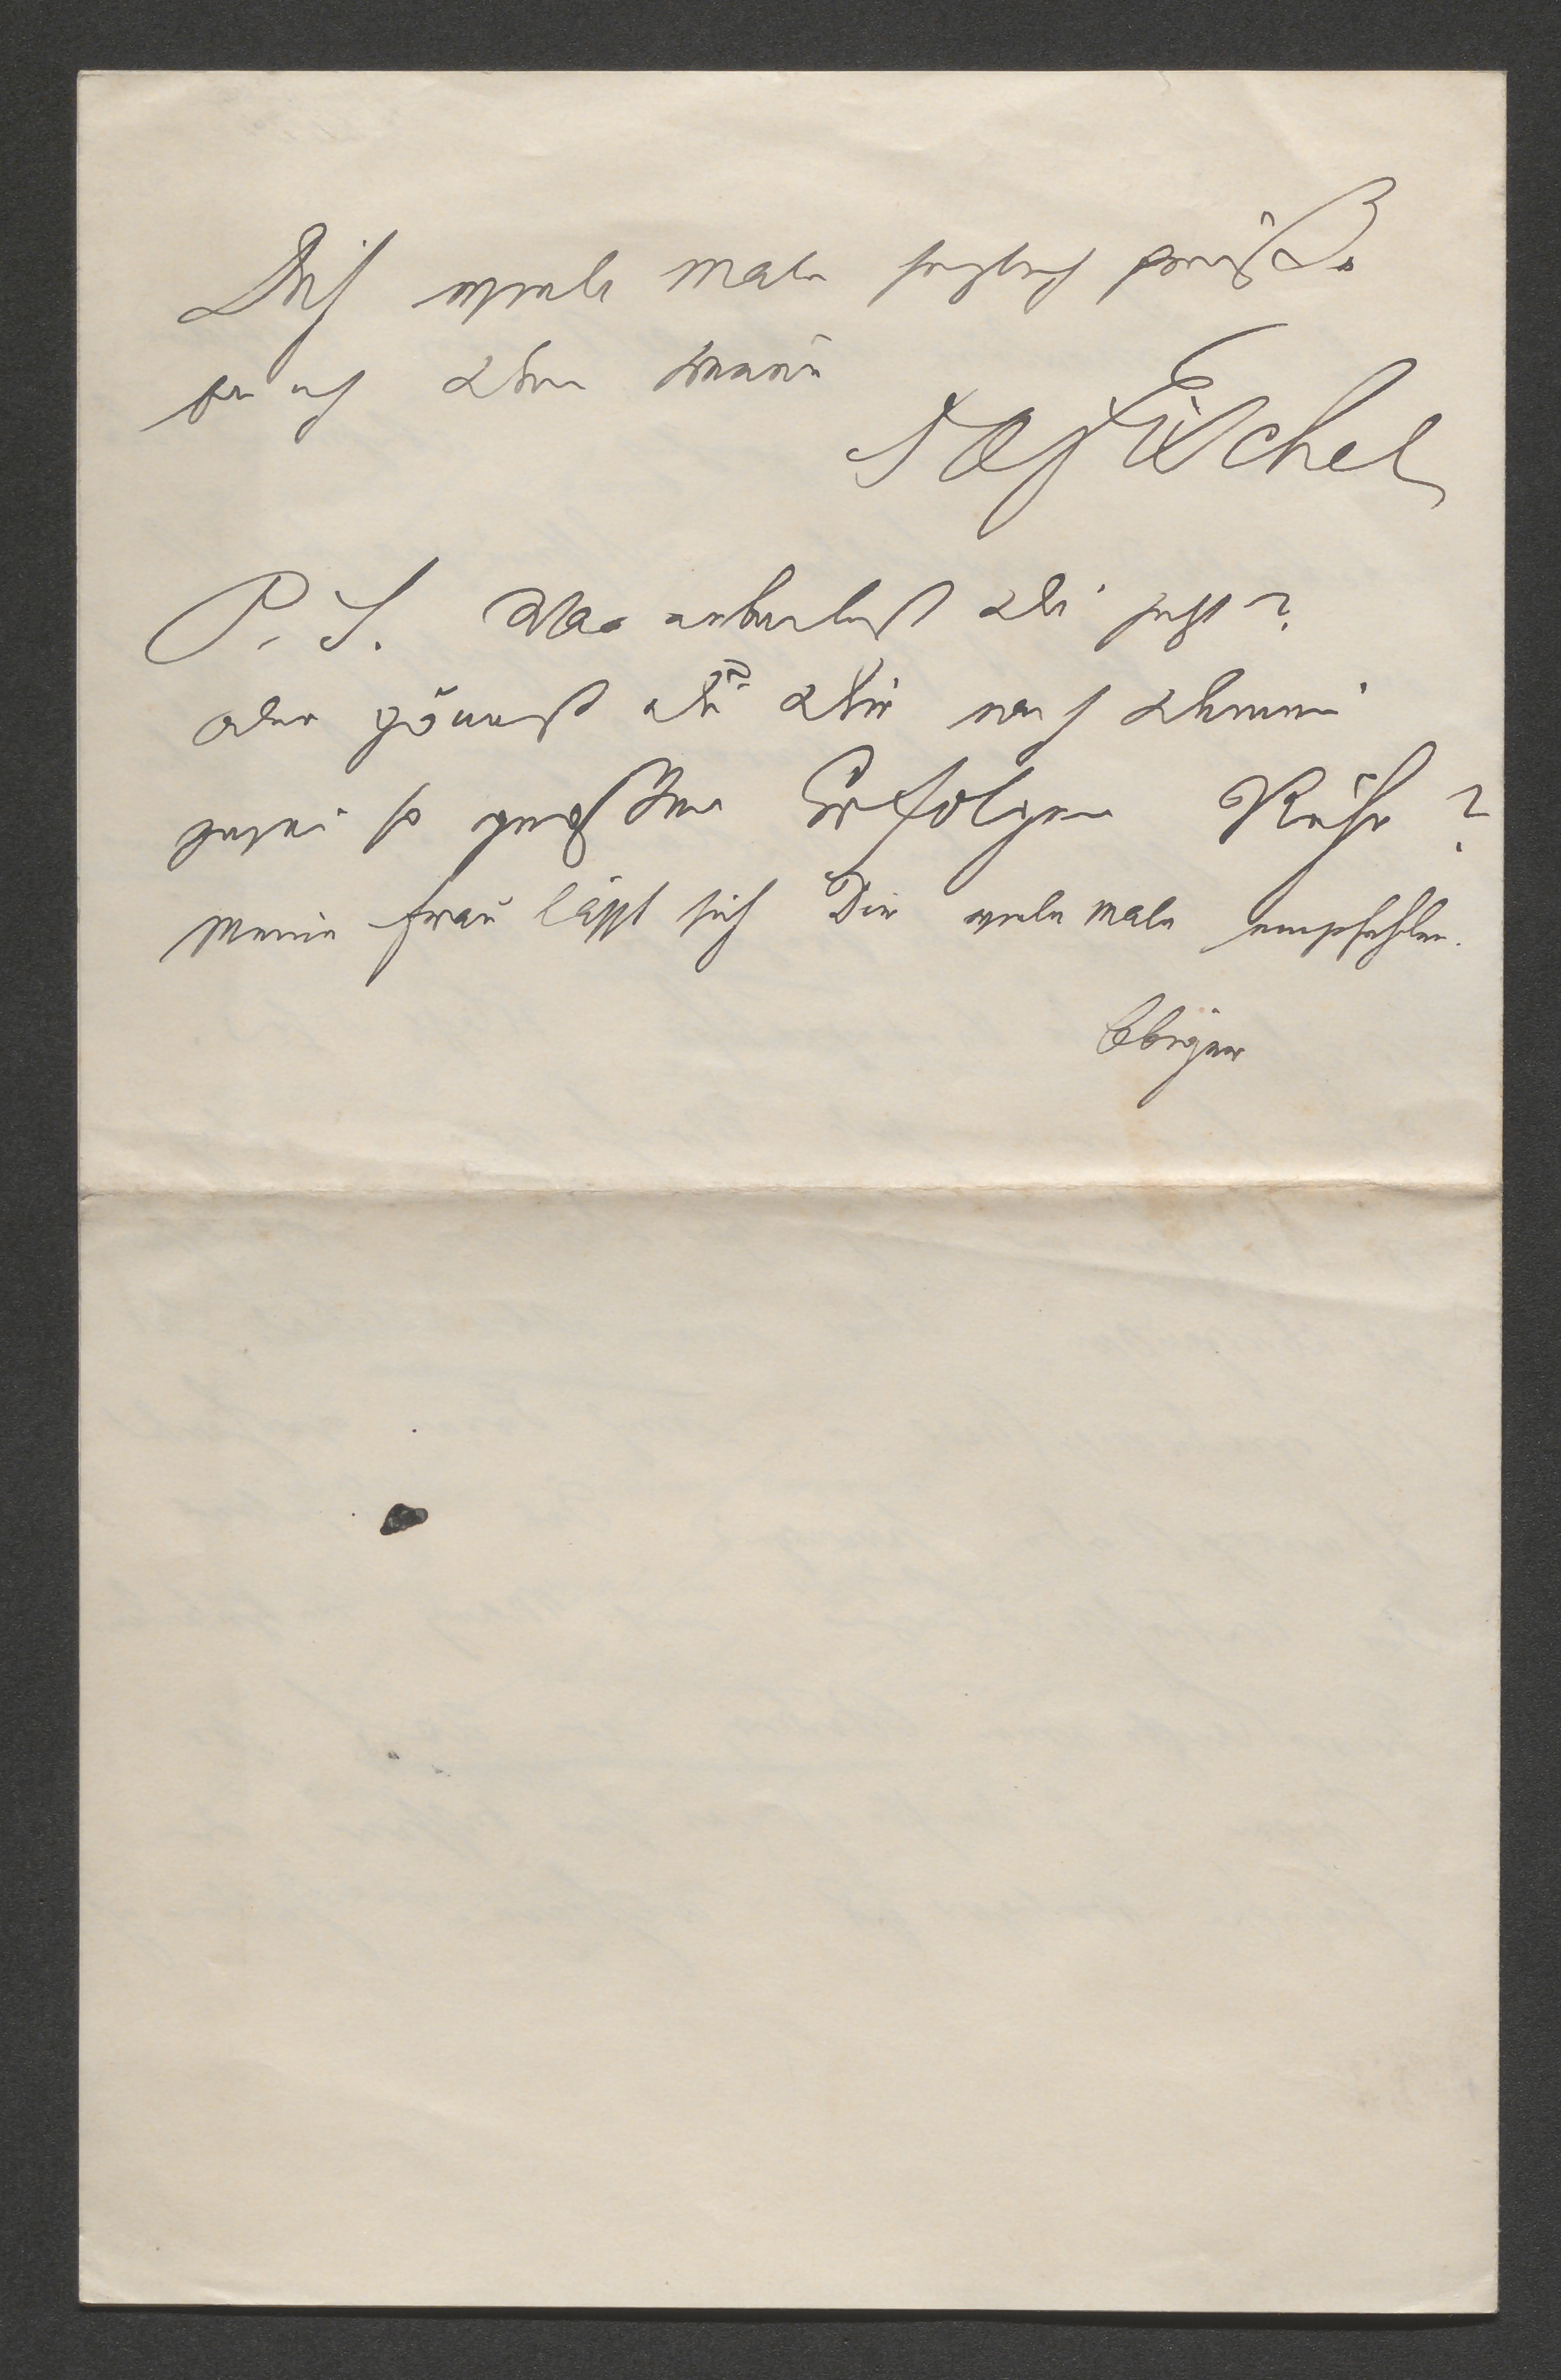 Dich viele Male herzlich grüßt
bin ich Dein
P. S. Was arbeitest Du jetzt?
oder gönnest Du Dir nach Deinen
zwei so großen Erfolgen Ruhe?
Meine Frau läßt sich Dir viele Male empfehlen.
Obiger